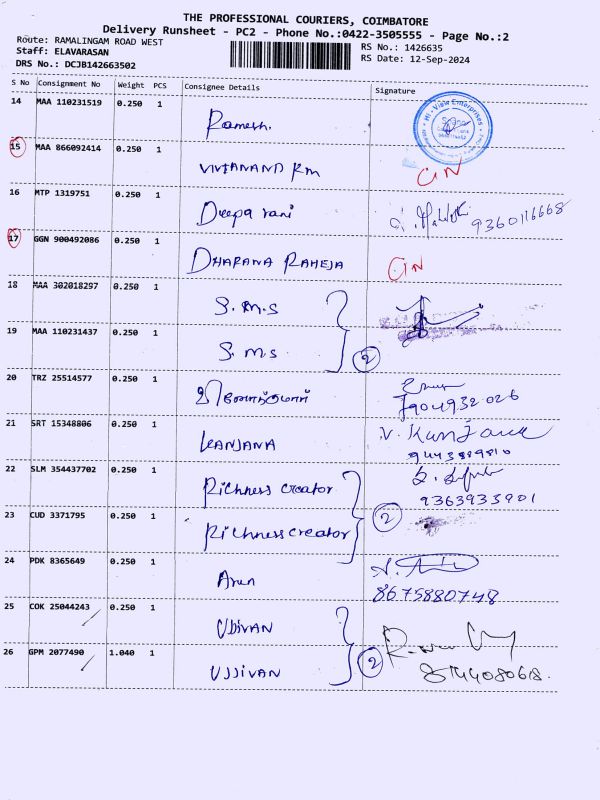 THE PROFESSIONAL COURIERS, COIMBATORE
Delivery Runsheet - PC2 - Phone No.:0422-3505555 - Page No.:2
Route: RAMALINGAM ROAD WEST
Staff: ELAVARASAN
DRS No.: DCJB142663502
RS No.: 1426635
RS Date: 12-Sep-2024
S No Consignment No Weight PCS Consignee Details Signature
14 MAA 110231519 0.250 1 Ramesh.
15 MAA 866092414 0.250 1 VIVIANAND RM
16 MTP 1319751 0.250 1 Deepa rani 9360116668
17 GGN 900492086 0.250 1 DHARANA RAHEJA
18 MAA 302018297 0.250 1 S.M.S
19 MAA 110231437 0.250 1 S.M.S 2
20 TRZ 25514577 0.250 1 7904932026
21 SRT 15348806 0.250 1 KANJANA V. Kanjana
9443889810
22 SLM 354437702 0.250 1 Richness creator
9363933901
23 CUD 3371795 0.250 1 Richness creator 2
24 PDK 8365649 0.250 1 Arun
8675880748
25 COK 25044243 0.250 1 UJJIVAN
26 GPM 2077490 1.040 1 UJJIVAN 2
8144080618.